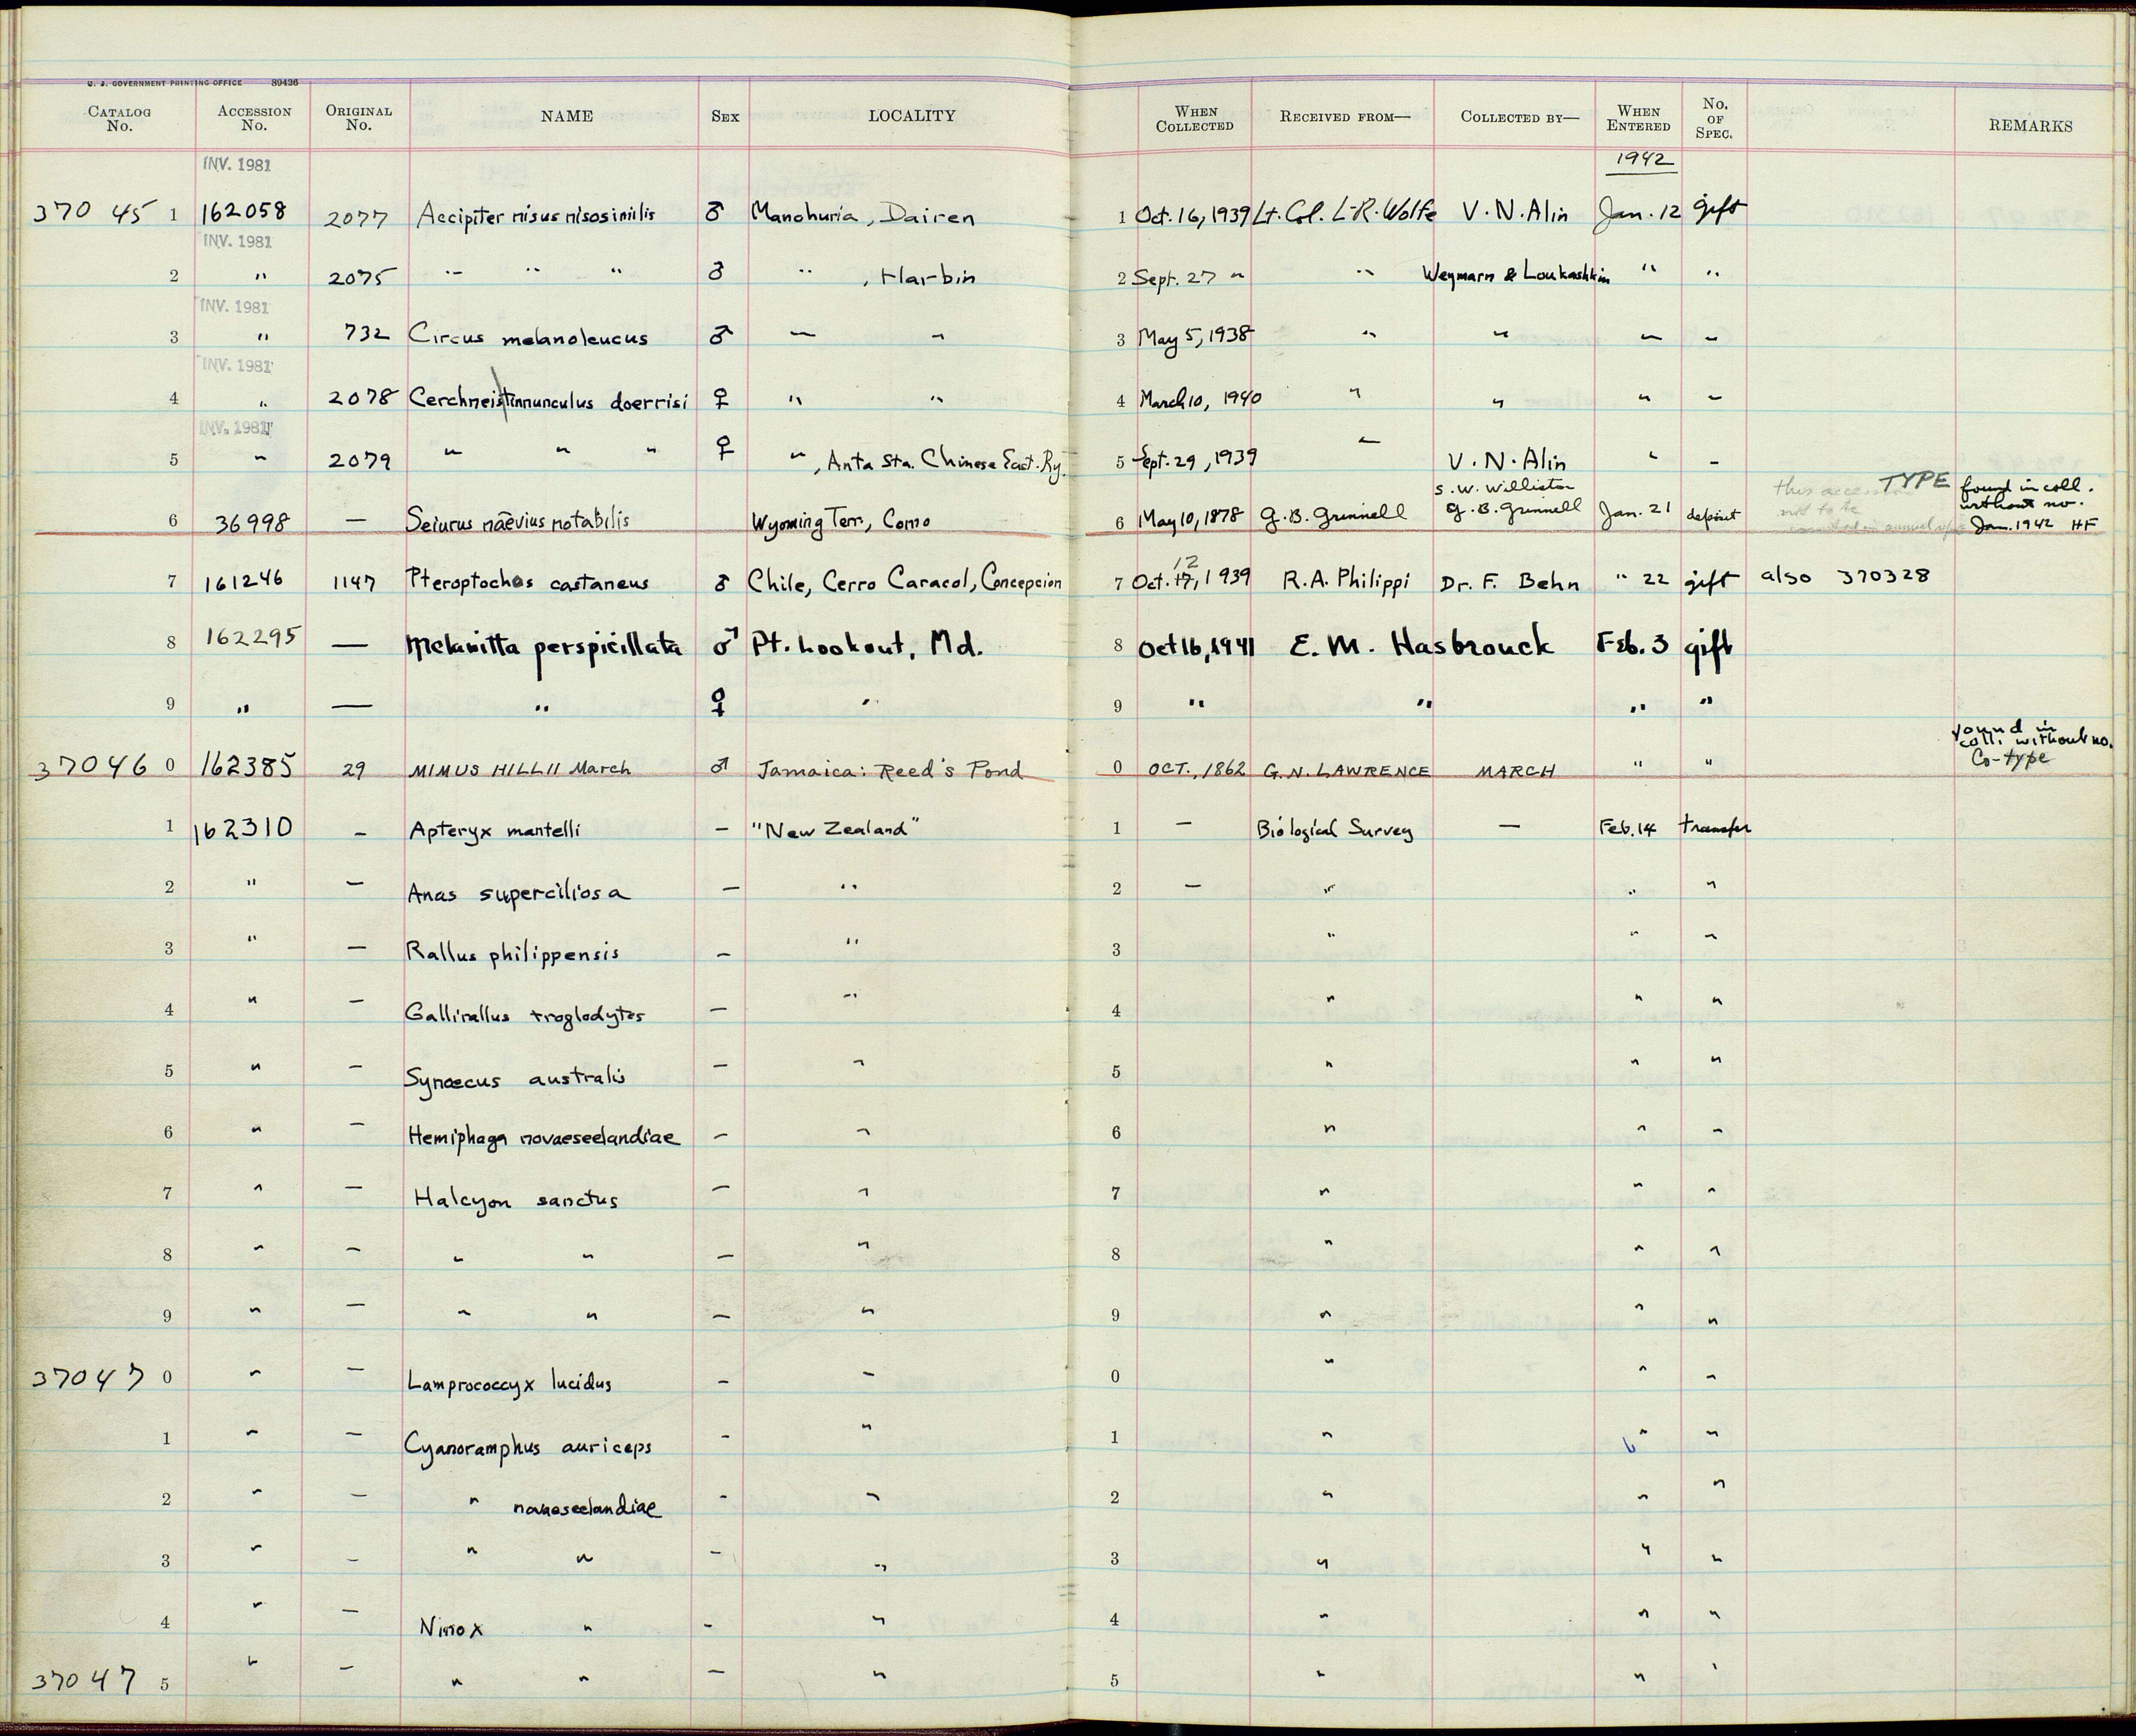 U. S. GOVERNMENT PRINTING OFFICE 89426
CATALOG No. ACCESSION No. ORIGINAL No. NAME SEX LOCALITY WHEN COLLECTED RECEIVED FROM— COLLECTED BY— WHEN ENTERED No. OF SPEC. REMARKS
INV. 1981 1942
370 45 1 162058 2077 Accipiter nisus nisosimilis ♂ Manchuria, Dairen 1 Oct. 16, 1939 Lt. Col. L. R. Wolfe V. N. Alin Jan. 12 gift
INV. 1981
2 " 2075 " " " ♂ " , Harbin 2 Sept. 27 " " Weymarn & Loukashkin " "
INV. 1981
3 " 732 Circus melanoleucus ♂ " " 3 May 5, 1938 " " " "
INV. 1981
4 " 2078 Cerchneis tinnunculus doerrisi ♀ " " 4 March 10, 1940 " " " "
INV. 1981
5 " 2079 " " " ♀ " , Anta Sta. Chinese East. Ry. 5 Sept. 29, 1939 " V. N. Alin " "
6 36998 — Seiurus naevius notabilis Wyoming Terr., Como 6 May 10, 1878 G. B. Grinnell S. W. Williston G. B. Grinnell Jan. 21 deposit this accession not to be counted in annual TYPE found in coll. without no. Jan. 1942 HF
7 161246 1147 Pteroptochos castaneus ♂ Chile, Cerro Caracol, Concepcion 7 Oct. 17, 12 1939 R. A. Philippi Dr. F. Behn " 22 gift also 370328
8 162295 — Melanitta perspicillata ♂ Pt. Lookout, Md. 8 Oct 16, 1941 E. M. Hasbrouck Feb. 3 gift
9 " — " ♀ " 9 " " " "
37046 0 162385 29 MIMUS HILLII March ♂ Jamaica: Reed's Pond 0 OCT., 1862 G. N. LAWRENCE MARCH " " found in coll. without no. Co-type
1 162310 — Apteryx mantelli — "New Zealand" 1 — Biological Survey — Feb. 14 transfer
2 " — Anas superciliosa — " 2 — " " "
3 " — Rallus philippensis — " 3 " " "
4 " — Gallirallus troglodytes — " 4 " " "
5 " — Synoecus australis — " 5 " " "
6 " — Hemiphaga novaeseelandiae — " 6 " " "
7 " — Halcyon sanctus — " 7 " " "
8 " — " " — " 8 " " "
9 " — " " — " 9 " " "
37047 0 " — Lamprococcyx lucidus — " 0 " " "
1 " — Cyanoramphus auriceps — " 1 " " "
2 " — " novaeseelandiae — " 2 " " "
3 " — " " — " 3 " " "
4 " — Ninox " — " 4 " " "
37047 5 " — " " — " 5 " " "